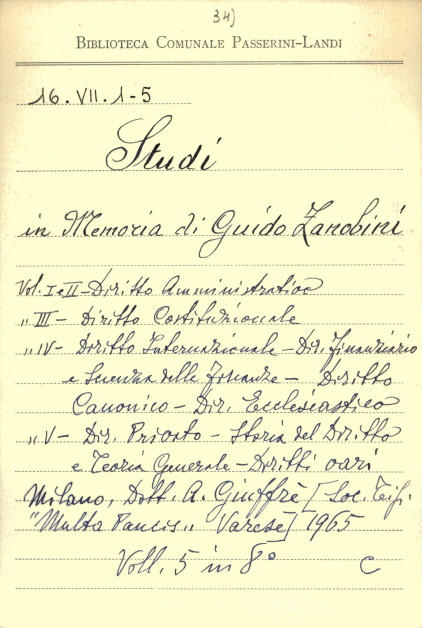 34)
BIBLIOTECA COMUNALE PASSERINI-LANDI
16. VII. 1-5
Studi
in Memoria di Guido Zanobini
Vol. I e II - Diritto Amministrativo
" III - Diritto Costituzionale
" IV - Diritto Internazionale - Dir. finanziario
e Scienza delle finanze - Diritto
Canonico - Dir. Ecclesiastico
" V - Dir. Privato - Storia del Diritto
e Teoria Generale - Diritti vari
Milano, Dott. A. Giuffrè [Soc. Tip.
"Multa Paucis" Varese] 1965
Voll. 5 in 8° C